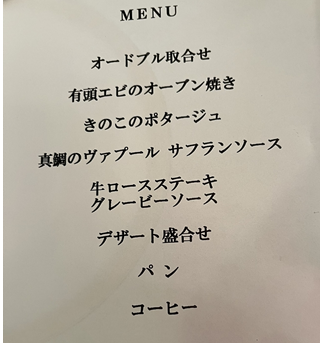 MENU
オードブル取合せ
有頭エビのオーブン焼き
きのこのポタージュ
真鯛のヴァプール サフランソース
牛ロースステーキ
グレービーソース
デザート盛合せ
パン
コーヒー